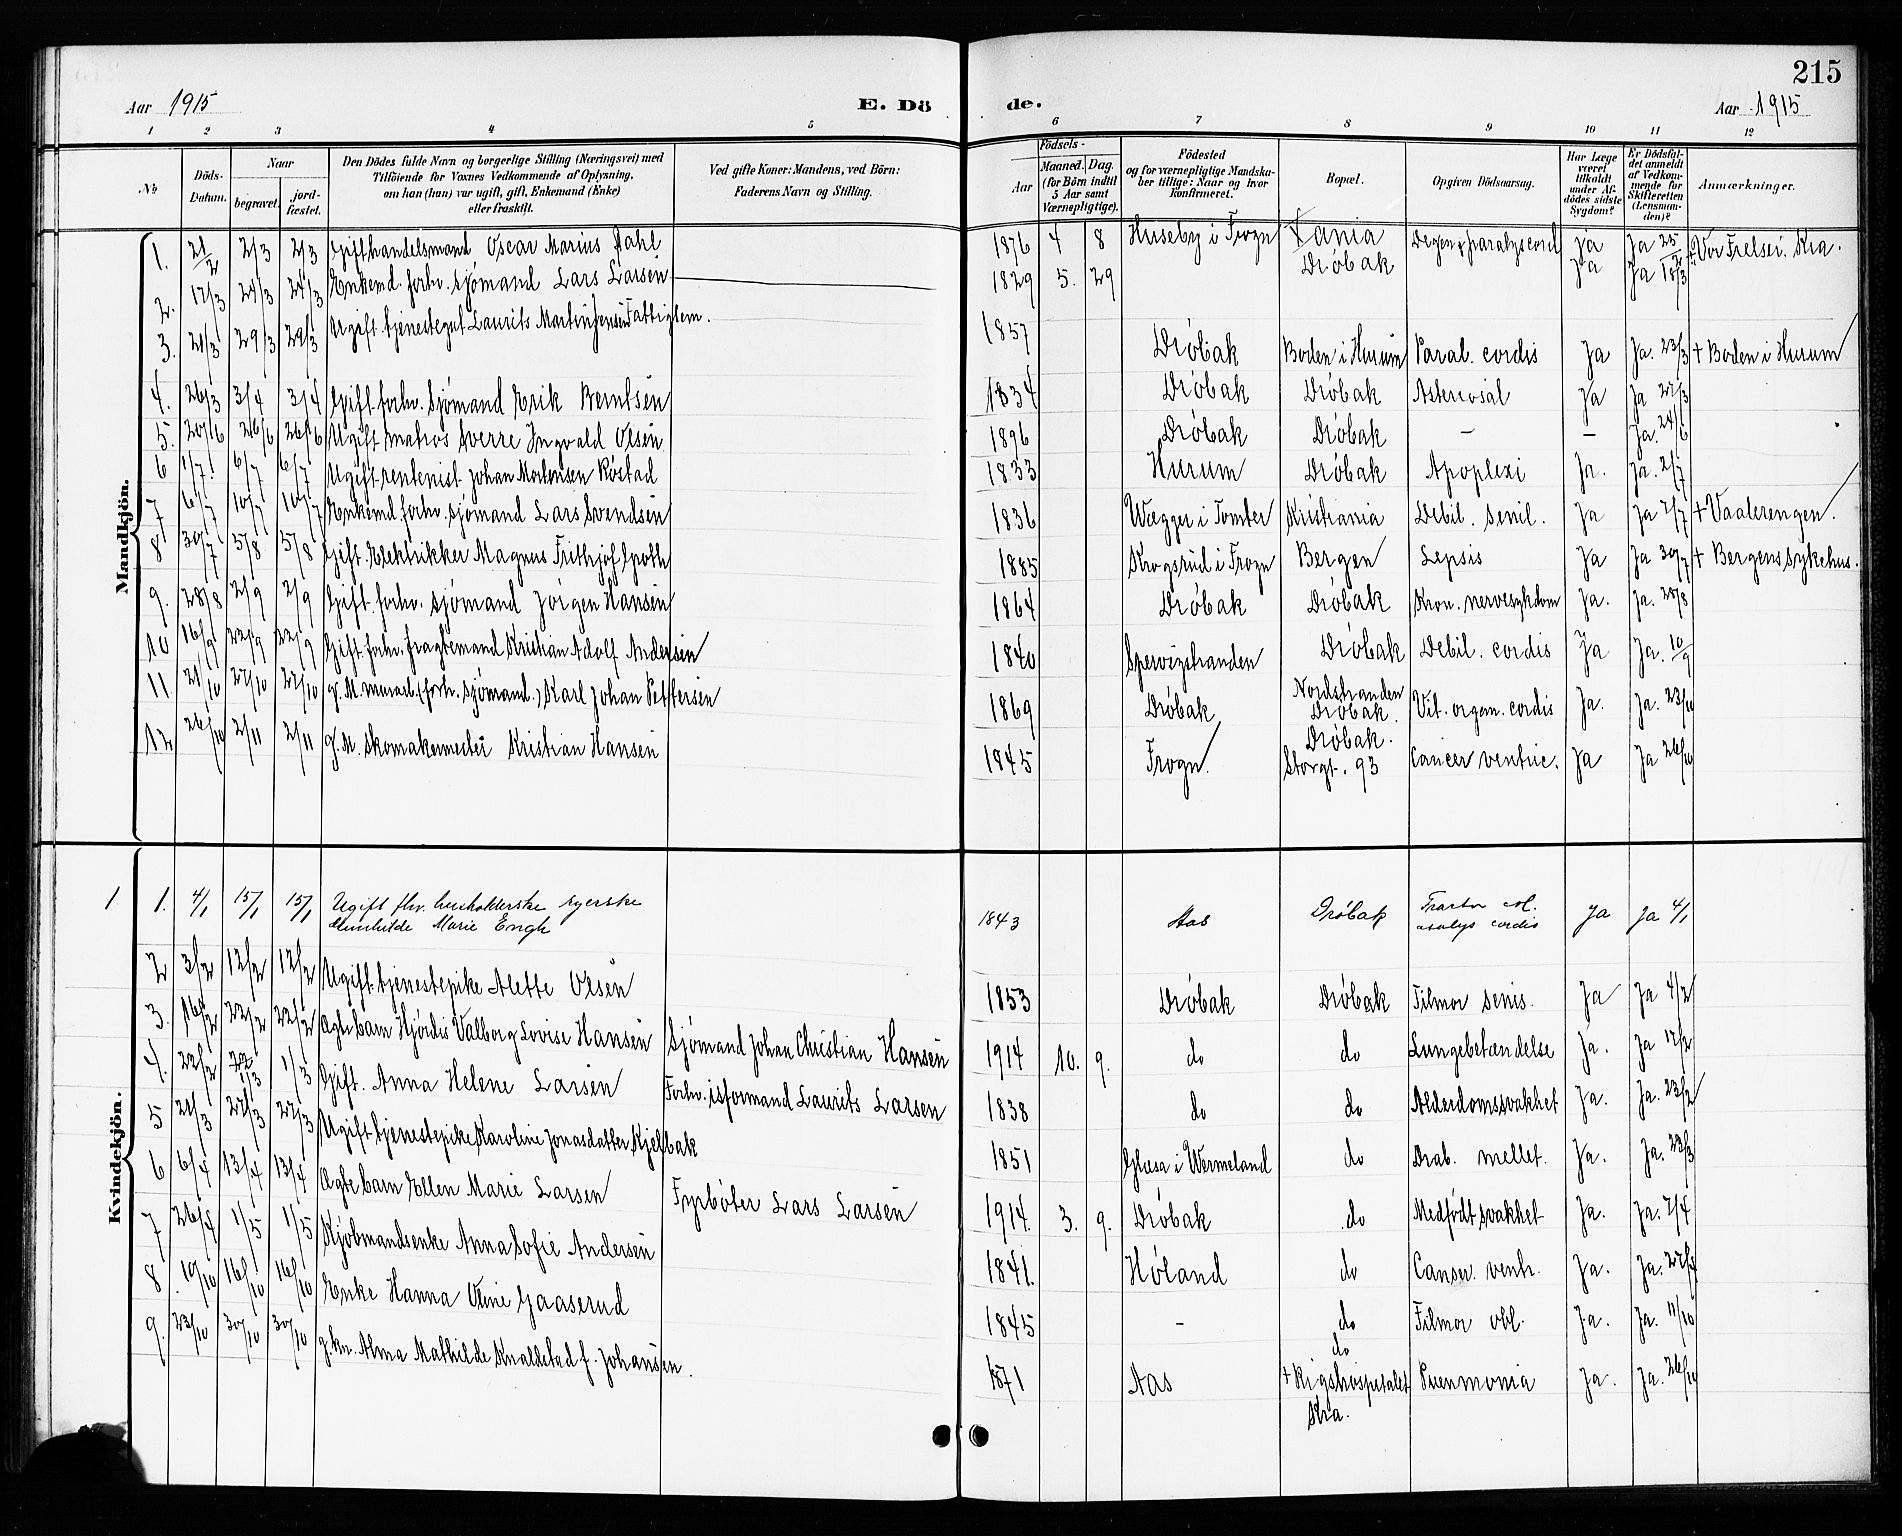 215
Aar 1915 E. Dö de. Aar 1915
1 2 3 4 5 6 7 8 9 10 11 12
No
Döds-Datum.
Naar
begravet.
jordfæstet.
Den Dödes fulde Navn og borgerlige Stilling (Næringsvei) med
Tilföiende for Voxnes Vedkommende af Oplysning,
om han (hun) var ugift, gift, Enkemand (Enke)
eller fraskilt.
Ved gifte Koner: Mandens, ved Börn:
Faderens Navn og Stilling.
Födsels-
Aar
Maaned. Dag.
(for Börn indtil
5 Aar samt
Værnepligtige).
Födested
og for værnepligtige Mandskaber tillige: Naar og hvor
konfirmeret.
Bopæl.
Opgiven Dödsaarsag.
Har Læge
været
tilkaldt
under Afdödes sidste
Sygdom?
Er Dödsfaldet anmeldt
af Vedkommende for
Skifteretten
(Lensmanden)?
Anmærkninger.
Mandkjön.
1. 21/2 2/3 2/3 Gift handelsmand Oscar Marius Dahl 1876 4 8 Huseby i Frogn Degen. paralys cord Ja Ja 25/2 Vor Frelser. Kra.
2. 17/3 24/3 24/3 Enkemd. forhv. sjømand Lars Larsen 1829 5. 29 Drøbak Ja Ja 18/3
3. 21/3 29/3 29/3 Ugift tjenestegut Laurits Martin Jensen Fattiglem. 1857 Drøbak Boden i Hurum Paral. cordis Ja Ja. 23/3 + Boden i Hurum
4. 26/3 3/4 3/4 Gift forhv. sjømand Erik Berntsen 1834 Drøbak Drøbak Ja Ja 27/3
5. 20/6 26/6 26/6 Ugift matros Sverre Ingvald Olsen 1896 Drøbak Drøbak – – Ja. 24/6
6 1/7. 6/7 6/7 Ugift rentenist Johan Mortensen Røstad 1833 Hurum Drøbak Apoplexi Ja. Ja. 2/7
7 6/7 10/7 10/7 Enkemd. forhv. sjømand Lars Svendsen 1836 Vægger i Tomter Kristiania Debil. senil. Ja Ja 7/7 + Vaalerengen.
8 30/7 5/8 5/8 Gift Elektrikker Magnus Frithjof Groth 1885 Krogsrud i Frogn Bergen Sepsis Ja Ja 30/7 + Bergens sykehus.
9. 28/8 2/9 2/9 Gift. forhv. sjømand Jørgen Hansen 1864 Drøbak Drøbak Kron. nervesykdom Ja. Ja. 28/8
10 16/9 22/9 22/9 Gift. forhv. fragtemand Kristian Adolf Andersen 1840 Drøbak Debil. cordis Ja Ja. 10/9
11. 21/10 27/10 27/10 g. M. murarb. (forh. sjømand.) Karl Johan Pettersen 1869 Drøbak Nordstranden Drøbak. Vit. organ. cordis Ja. Ja. 23/10
12 26/10 2/11 2/11 g. M. skomakermester Kristian Hansen 1845 Frogn. Drøbak. Storgt. 93 Cancer ventric. Ja Ja 26/10
Kvindekjön.
1 1. 4/1 15/1 15/1 Ugift fhv. husholderske syerske
Marie Engh 1843 Aas Drøbak cordis Ja Ja 4/1
2 3/2 12/2 12/2 Ugift tjenestepike Alette Olsen 1853 Drøbak Drøbak senis. Ja Ja 4/2
3. 16/2 22/2 22/2 Ægte barn Hjørdis Valborg Lovise Hansen Sjømand Johan Christian Hansen 1914 10. 9. do do Lungebetændelse Ja. Ja 17/2
4. 22/2 1/3 Gift. Anna Helene Larsen Forhv. isformand Laurits Larsen 1838 do do Alderdomssvakhet Ja. Ja. 23/2
5 21/3 27/3 27/3 Ugift tjenestepike Karoline Jonasdatter Kjelbak 1851 Glava i Wermeland do mellet. Ja. Ja. 23/3
6 6/4 13/4 13/4 Ægte barn Ellen Marie Larsen Fyrbøter Lars Larsen 1914. 3. 9. Drøbak do Medfødt svakhet Ja. Ja. 7/4
7 26/4 1/5 1/5 Kjøbmandsenke Anna Sofie Andersen 1841. Høland do Canser. ventr. Ja. Ja. 27/4
8 10/10 16/10 16/10 Enke Hanna Oline Gaaserud 1845 – do Ja. Ja. 11/10
9. 23/10 30/10 30/10 g. kn. Alma Mathilde Knaldstad f. Johansen. 1871 Aas do + Rigshospitalet Kra. Pnenmonia Ja. Ja. 26/10